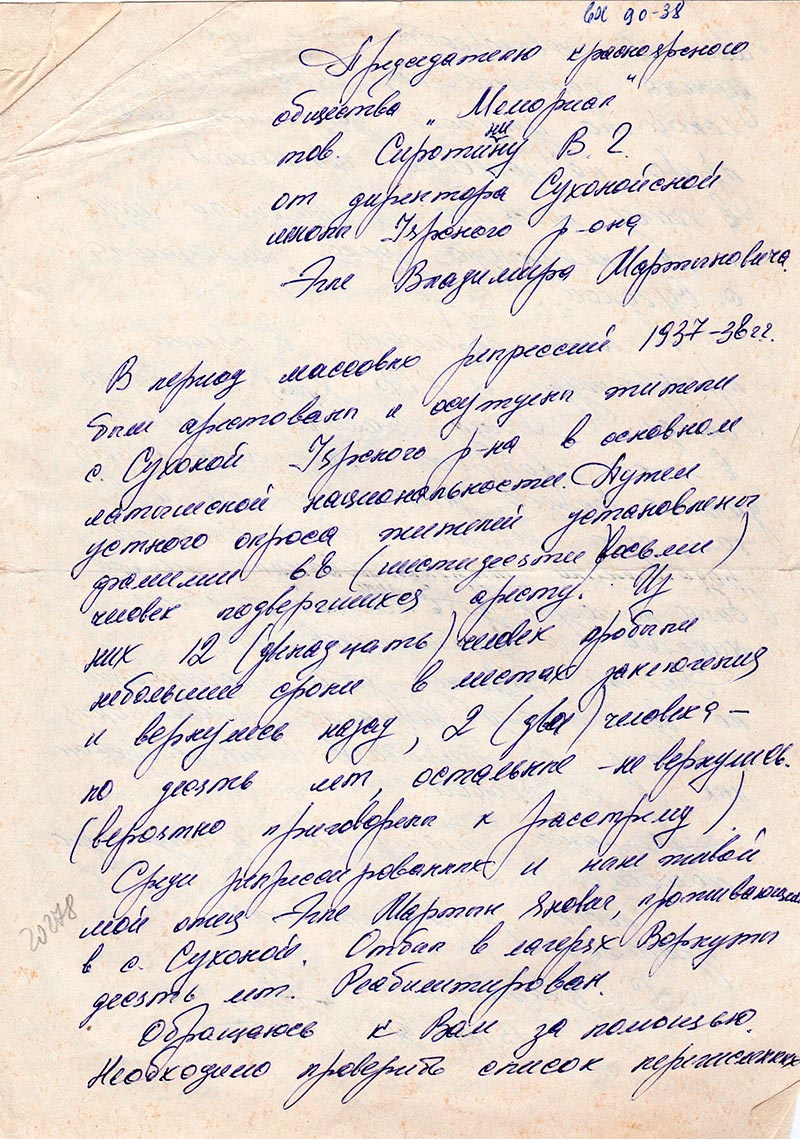 вх 90-38
Председателю красноярского
общества "Мемориал"
тов. Сиротинину В. Г.
от директора Сухонойской
школы Идрского р-она
Эгле Владимира Мартыновича.
В период массовых репрессий 1937-38 гг.
были арестованы и осуждены жители
с. Сухоной Идрского р-на в основном
латышской национальности. Путем
устного опроса жителей установлены
фамилии 68 (шестидесяти восьми)
человек подвергшихся аресту. Из
них 12 (двенадцать) человек пробыли
небольшие сроки в местах заключения
и вернулись назад, 2 (два) человека –
по десять лет, остальные – не вернулись.
(вероятно приговорены к расстрелу)
Среди репрессированных и ныне живой
мой отец Эгле Мартын Янович, проживающий
в с. Сухоной. Отбыл в лагерях Воркуты
десять лет. Реабилитирован.
Обращаюсь к Вам за помощью.
Необходимо проверить список перечисленных
20278